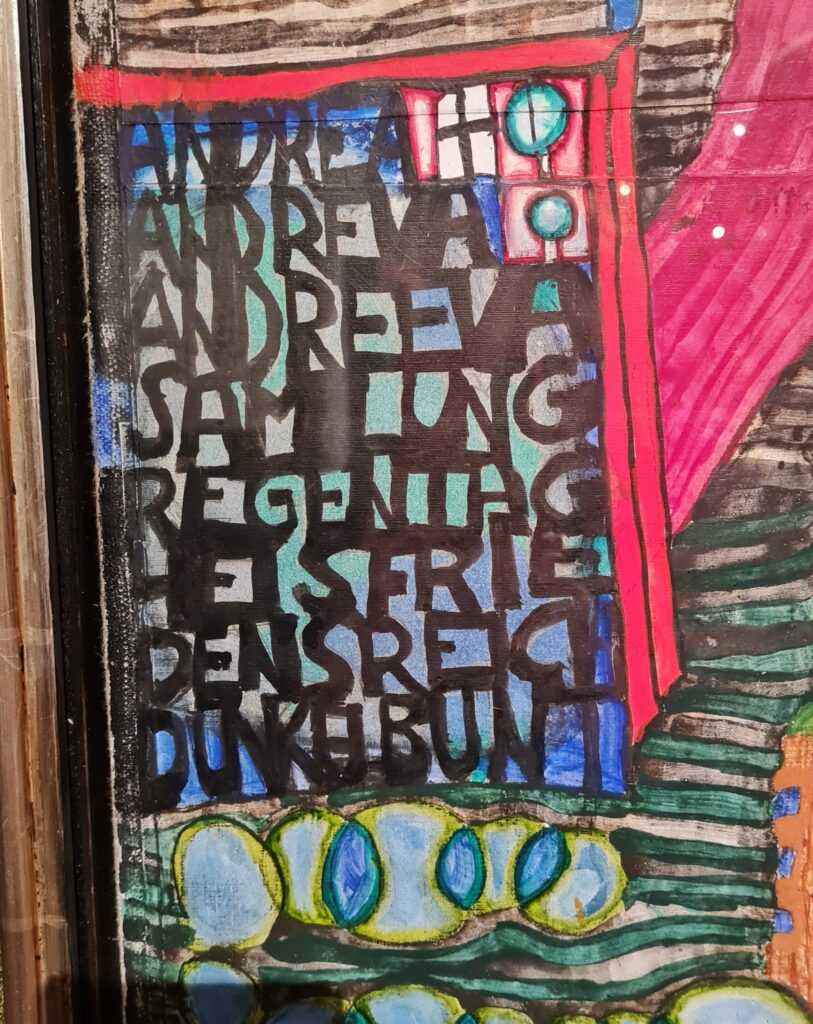 ANDREA
ANDREVA
ANDREEVA
SAMLUNG
REGENTAG
HEISFRIE
DENSREICH
DUNKELBUNT